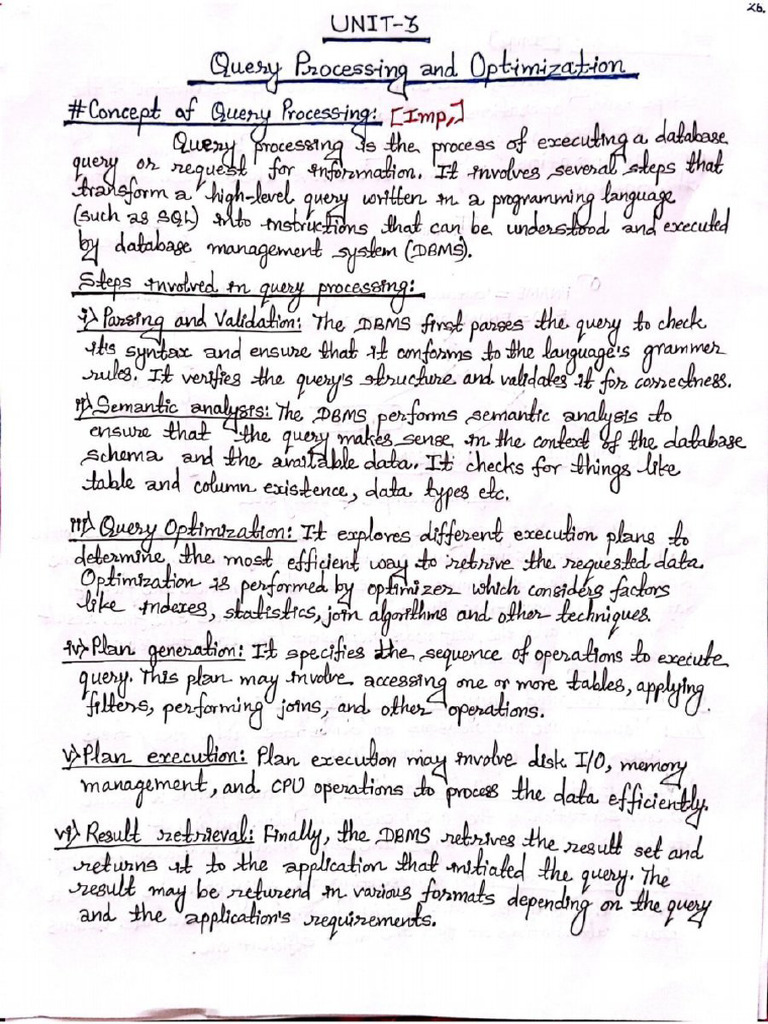 26.
UNIT-3
Query Processing and Optimization
# Concept of Query Processing: [Imp.]
Query processing is the process of executing a database
query or request for information. It involves several steps that
transform a high-level query written in a programming language
(such as SQL) into instructions that can be understood and executed
by database management system (DBMS).
Steps involved in query processing:
i) Parsing and Validation: The DBMS first parses the query to check
its syntax and ensure that it conforms to the language's grammer
rules. It verifies the query's structure and validates it for correctness.
ii) Semantic analysis: The DBMS performs semantic analysis to
ensure that the query makes sense in the context of the database
schema and the available data. It checks for things like
table and column existence, data types etc.
iii) Query Optimization: It explores different execution plans to
determine the most efficient way to retrive the requested data.
Optimization is performed by optimizer which considers factors
like indexes, statistics, join algorithms and other techniques.
iv) Plan generation: It specifies the sequence of operations to execute
query. This plan may involve accessing one or more tables, applying
filters, performing joins, and other operations.
v) Plan execution: Plan execution may involve disk I/O, memory
management, and CPU operations to process the data efficiently.
vi) Result retrieval: Finally, the DBMS retrives the result set and
returns it to the application that initiated the query. The
result may be returend in various formats depending on the query
and the application's requirements.